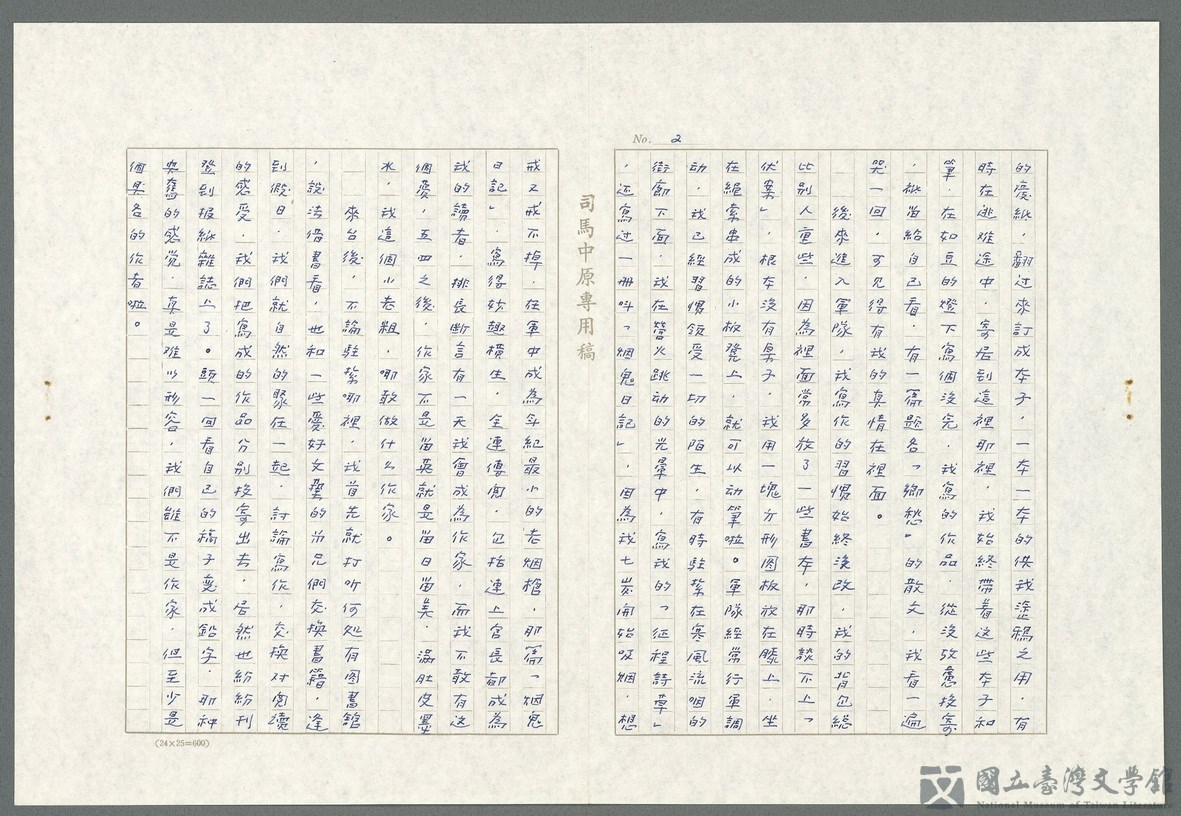 No. 2
的廢紙，翻过來訂成本子，一本一本的供我塗鴉之用，有
時在逃难途中，寄居到這裡那裡，我始終帶着这些本子和
筆，在如豆的燈下寫個沒完，我寫的作品，從沒攷慮投寄
，祇当給自己看，有一篇題名「鄉愁」的散文，我看一遍
哭一回，可見得有我的真情在裡面。
後來進入軍隊，我寫作的習慣始終沒改，我的背包総
比别人重些，因為裡面常多放了一些書本，那時談不上「
伏案」，根本沒有桌子，我用一塊方形图板放在膝上，坐
在繩索串成的小板凳上，就可以动筆啦。軍隊経常行軍調
动，我已經習慣領受一切的陌生，有時駐紮在寒風流咽的
街廊下面，我在營火跳动的光暈中，寫我的「征程詩草」
，还寫过一册叫「烟鬼日記」，因為我七岁開始吸烟，想
司馬中原專用稿
戒又戒不掉，在軍中成為年紀最小的老烟槍，那篇「烟鬼
日記」，寫得妙趣橫生，全連傳閱，包括連上官長都成為
我的讀者，排長断言有一天我會成為作家，而我不敢有这
個夢，五四之後，作家不是留英就是留日留美，滿肚皮墨
水，我這個小老粗，哪敢做什么作家。
來台後，不論駐紮哪裡，我首先就打听何处有图書館
，設法借書看，也和一些愛好文藝的弟兄們交換書籍，逢
到假日，我們就自然的聚在一起，討論寫作，交換对閱讀
的感受，我們把寫成的作品分别投寄出去，居然也紛紛刊
登到报紙雜誌上了。頭一回看自己的稿子变成鉛字，那种
興奮的感覚，真是难以形容，我們雖不是作家，但至少是
個具名的作者啦。
(24×25=600)
國立臺灣文學館
National Museum of Taiwan Literature